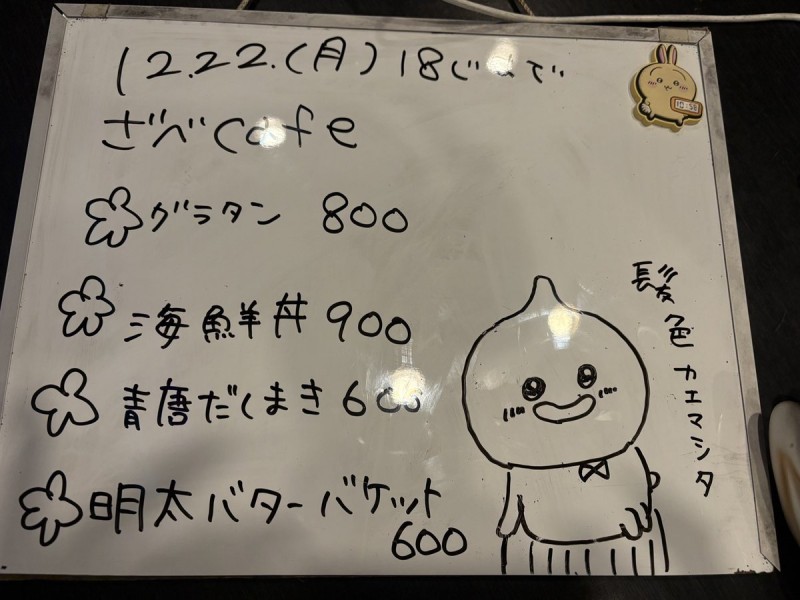 12.22.(月)18じまで
ざべCafe
グラタン 800
海鮮丼 900
青唐だしまき 600
明太バターバケット
600
髪色カエマシタ